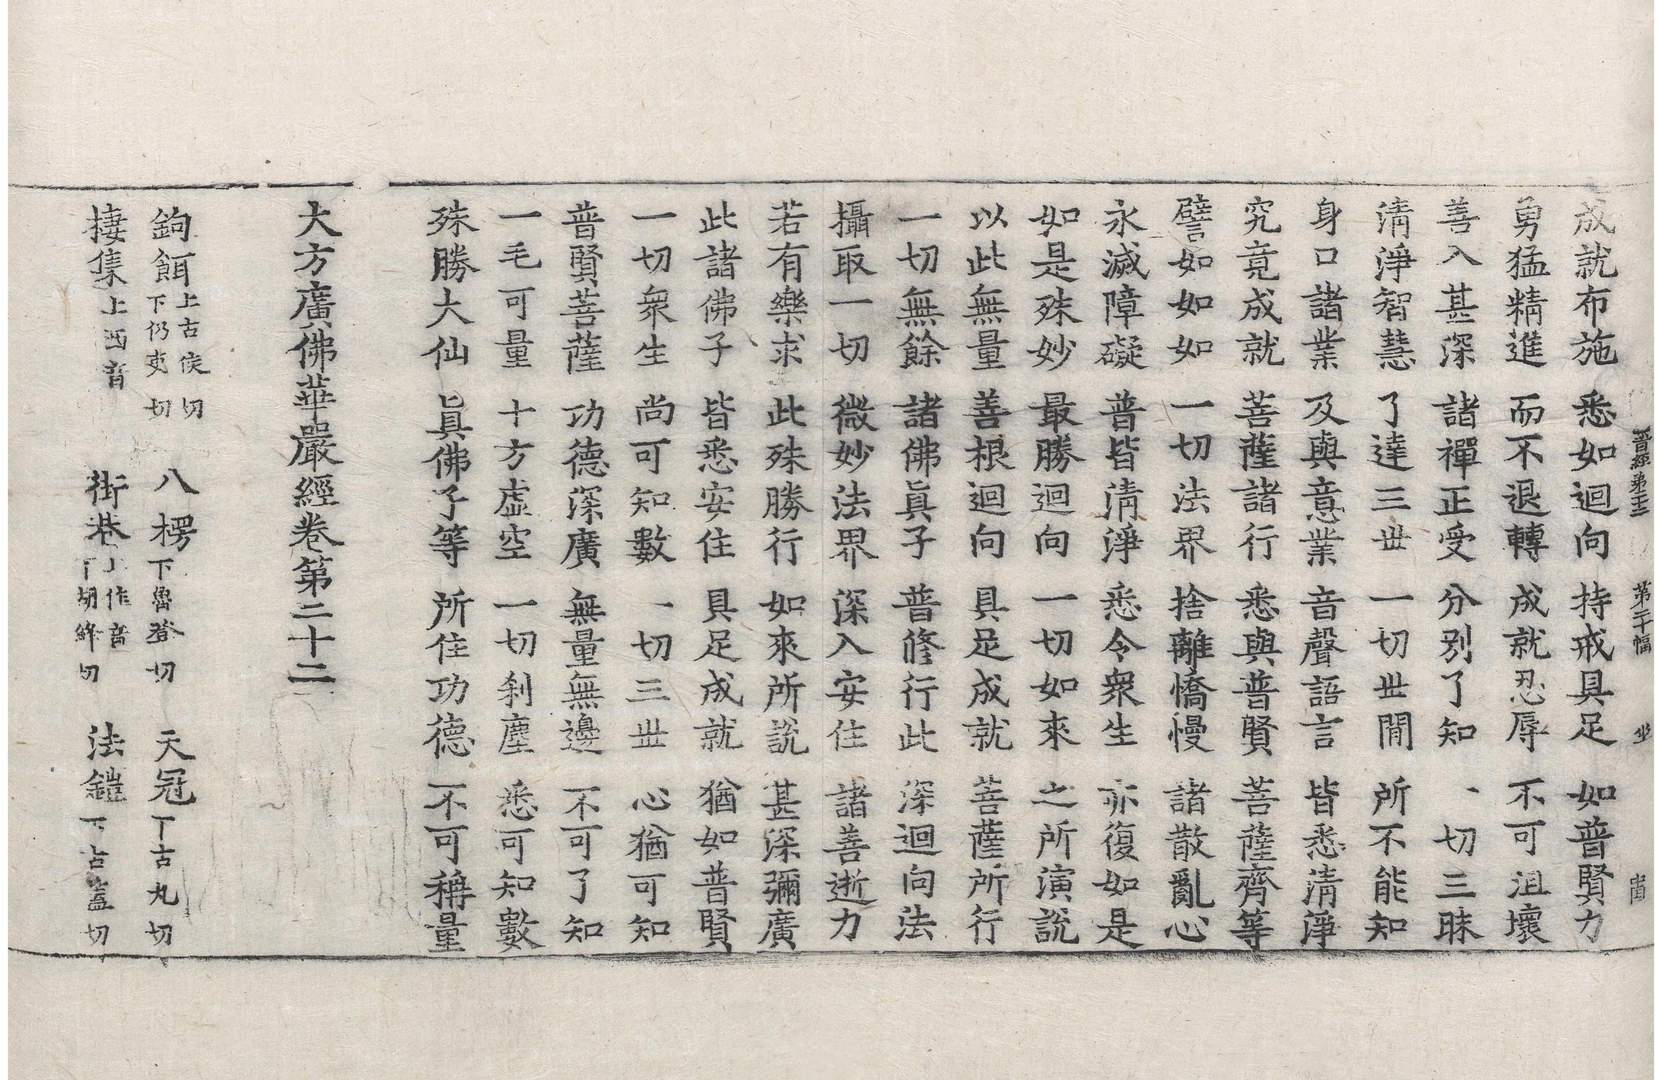 晉經第二十二　第二十幅　坐　崮
成就布施　悉如迴向　持戒具足　如普賢力
勇猛精進　而不退轉　成就忍辱　不可沮壞
善入甚深　諸禪正受　分別了知　一切三昧
清淨智慧　了達三世　一切世閒　所不能知
身口諸業　及與意業　音聲語言　皆悉清淨
究竟成就　菩薩諸行　悉與普賢　菩薩齊等
譬如如如　一切法界　捨離憍慢　諸散亂心
永滅障礙　普皆清淨　悉令衆生　亦復如是
如是殊妙　最勝迴向　一切如來　之所演說
以此無量　善根迴向　具足成就　菩薩所行
一切無餘　諸佛眞子　普脩行此　深迴向法
攝取一切　微妙法界　深入安住　諸善逝力
若有樂求　此殊勝行　如來所說　甚深彌廣
此諸佛子　皆悉安住　具足成就　猶如普賢
一切衆生　尚可知數　一切三世　心猶可知
普賢菩薩　功德深廣　無量無邊　不可了知
一毛可量　十方虛空　一切刹塵　悉可知數
殊勝大仙　眞佛子等　所住功德　不可稱量
大方廣佛華嚴經卷第二十二
鉤餌上古侯切下仍吏切　八楞下魯登切　天冠下古丸切
棲集上西音　街巷上作音下胡絳切　法鎧下古蓋切